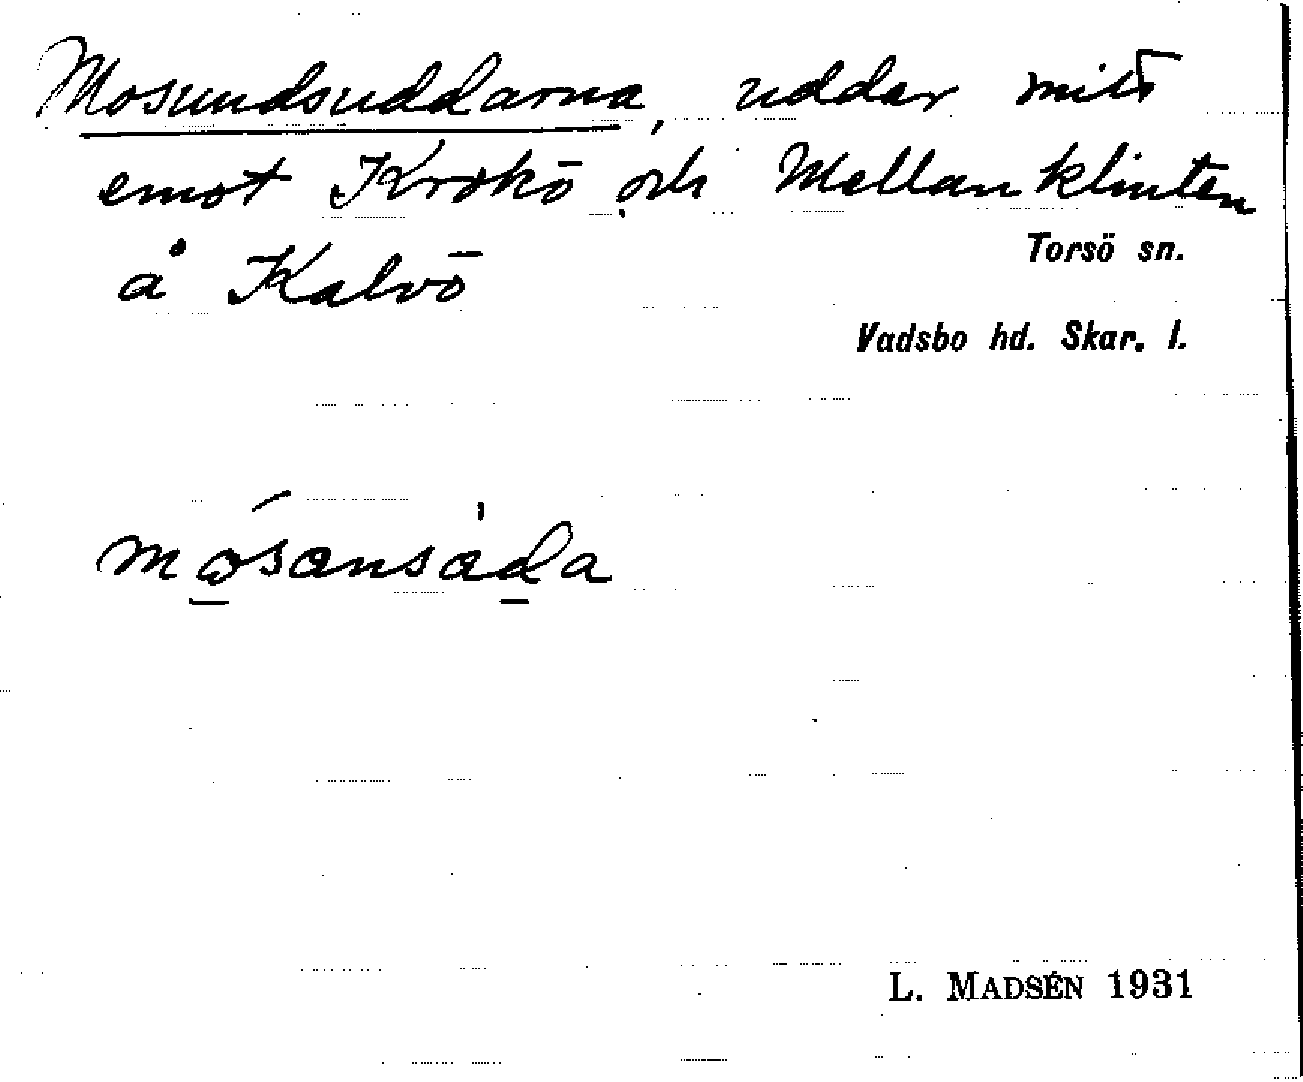 Mosundsuddarna, uddar mitt
emot Krokö och Mellanklinten
å Kalvö
Torsö sn.
Vadsbo hd. Skar. l.
L. MADSÉN 1931